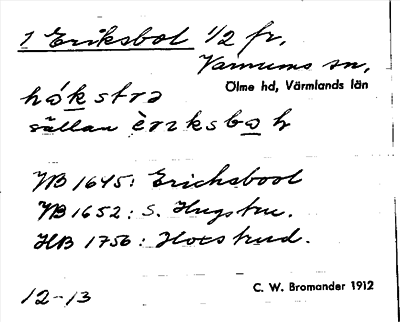 1 Eriksbol 1/2 fr.
Varnums sn,
Ölme hd, Värmlands län
hákstra
sällan èriksbol
JB 1645: Erichsbool
JB 1652: S. Hugstru.
HB 1756: Hoxstrud.
12-13 C. W. Bromander 1912